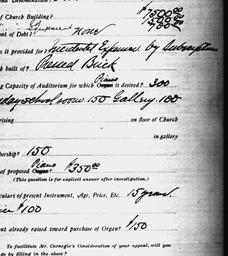 of Church Building? $7500.00
$480.00
nt of Debt? none
is it provided for? Incidental Expense by subscription
ch built of? Cased Brick
ng Capacity of Auditorium for which Piano Organ is desired? 300
nday school room 150 Gallery 100
prising on floor of Church
in gallery
bership? 150
of proposed Organ? Piano $350.00
(This question is for explicit answer after investigation.)
culars of present Instrument, Age, Price, Etc. 15 years.
ice $100
ount already raised toward purchase of Organ? $150
To facilitate Mr. Carnegie's Consideration of your appeal, will you
gs by filling in the above?